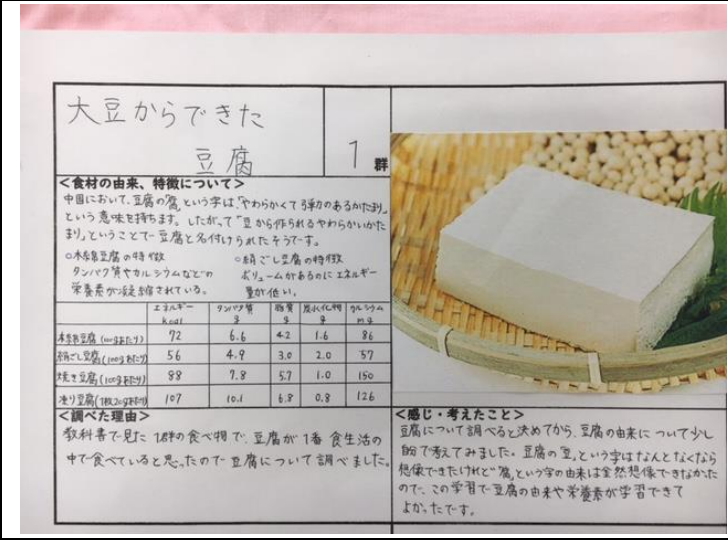 大豆からできた
豆腐
1 群
<食材の由来、特徴について>
中国において、豆腐の「腐」という字は「やわらかくて弾力のあるかたまり」
という意味を持ちます。したがって「豆から作られるやわらかいかた
まり」ということで豆腐と名付けられたそうです。
○木綿豆腐の特徴
タンパク質やカルシウムなどの
栄養素が凝縮されている。
○絹ごし豆腐の特徴
ボリュームがあるのにエネルギー
量が低い。
エネルギー kcal タンパク質 g 脂質 g 炭水化物 g カルシウム mg
木綿豆腐(100gあたり) 72 6.6 4.2 1.6 86
絹ごし豆腐(100gあたり) 56 4.9 3.0 2.0 57
焼き豆腐(100gあたり) 88 7.8 5.7 1.0 150
凍り豆腐(1枚20gあたり) 107 10.1 6.8 0.8 126
<調べた理由>
教科書で見た1群の食べ物で、豆腐が1番食生活の
中で食べていると思ったので豆腐について調べました。
<感じ・考えたこと>
豆腐について調べると決めてから、豆腐の由来について少し
自分で考えてみました。豆腐の「豆」という字はなんとなくなら
想像できたけれど「腐」という字の由来は全然想像できなかった
ので、この学習で豆腐の由来や栄養素が学習できて
よかったです。